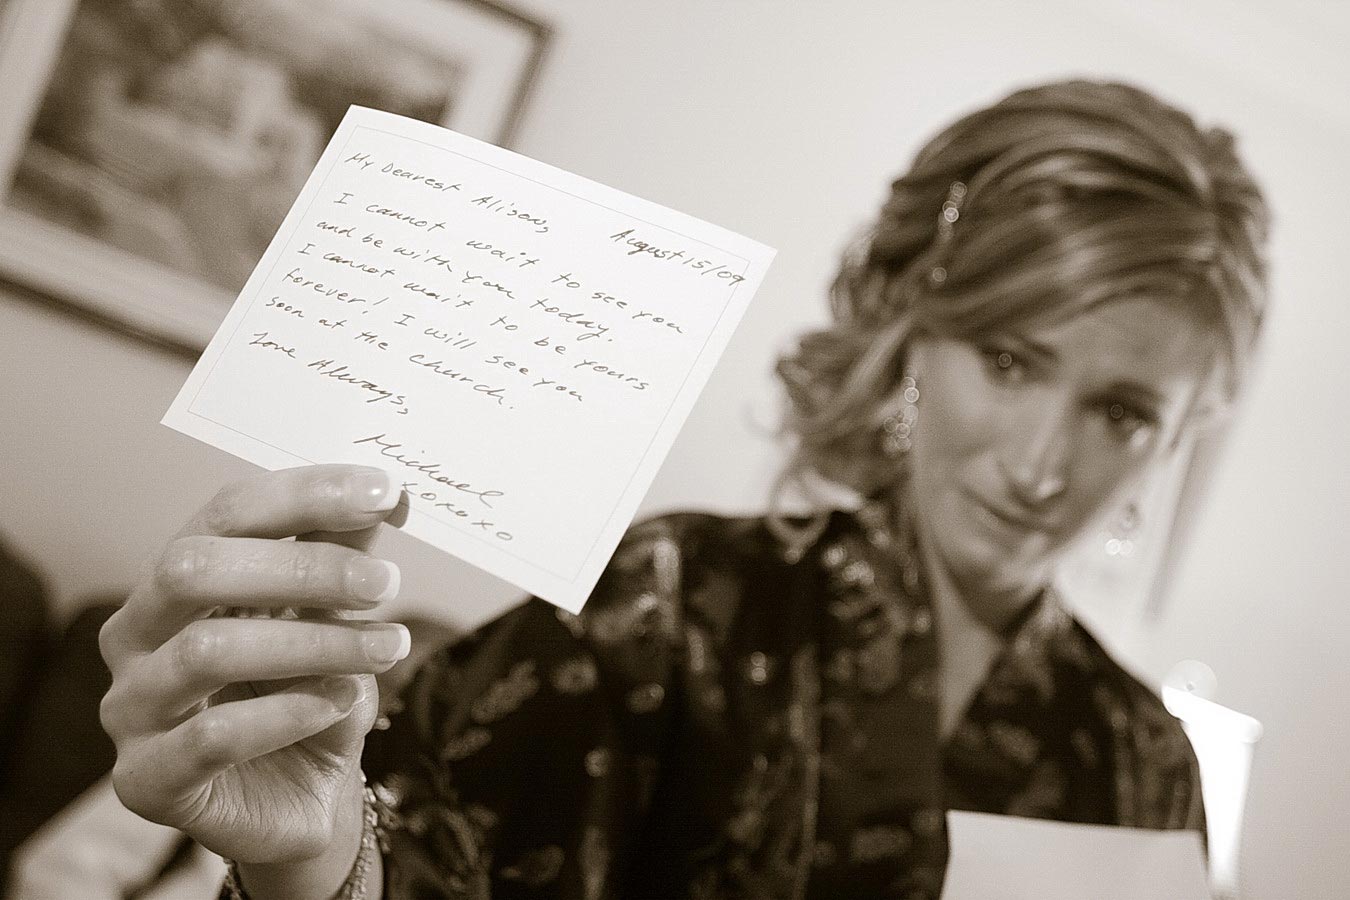 My Dearest Alison,
August 15/09
I cannot wait to see you
and be with you today.
I cannot wait to be yours
forever! I will see you
soon at the church.
Love Always,
Michael
XOXOXO